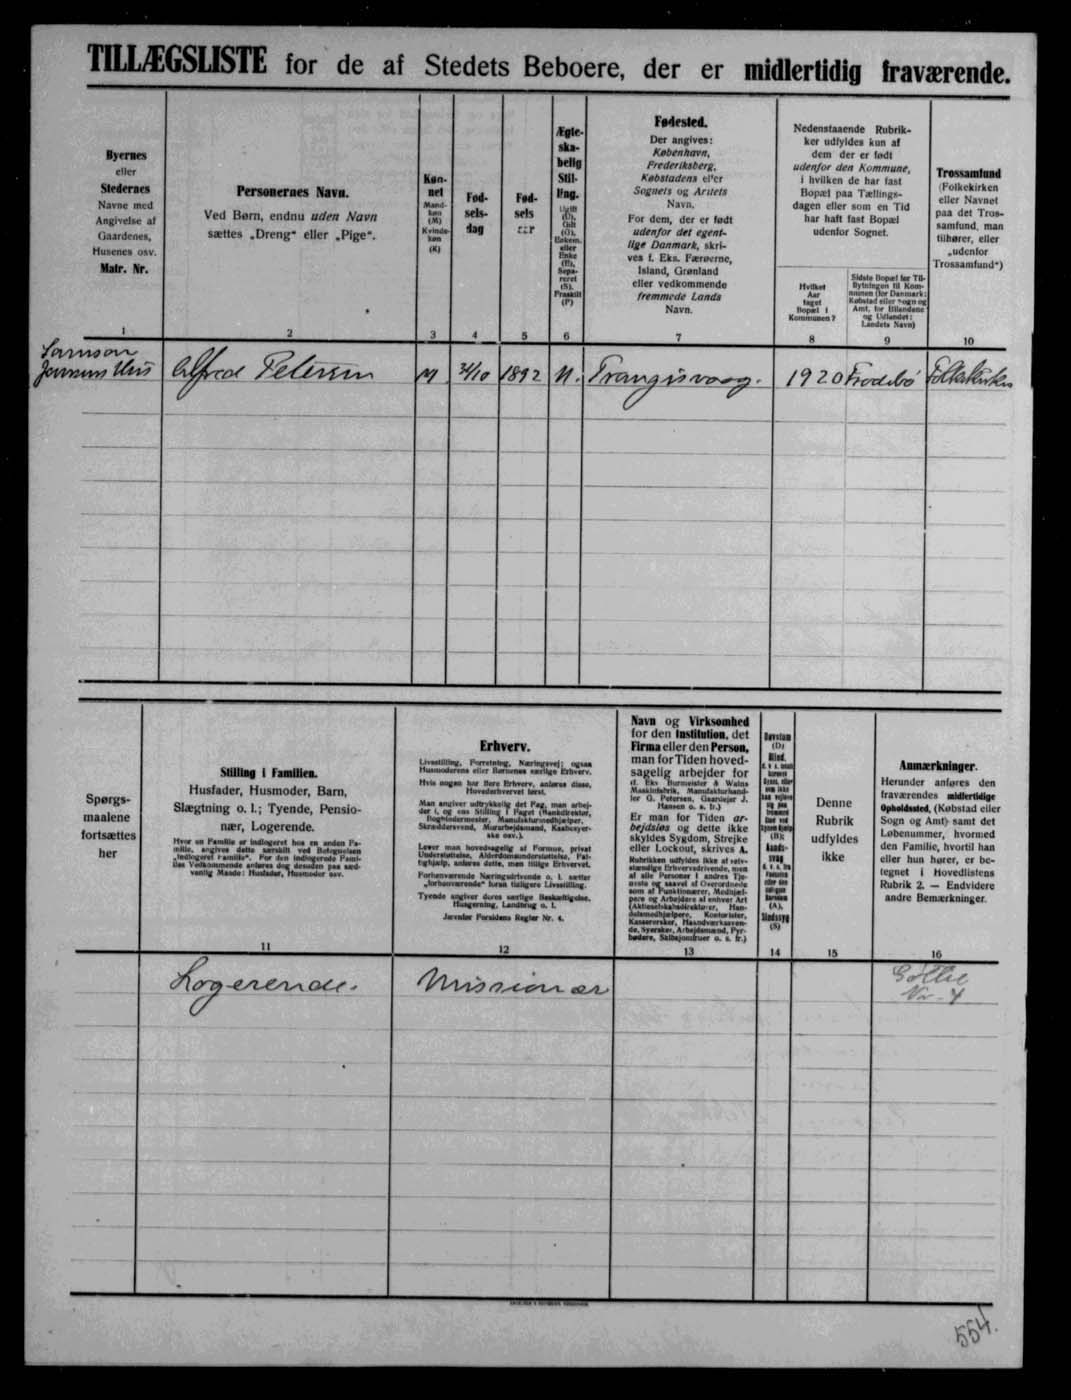 TILLÆGSLISTE for de af Stedets Beboere, der er midlertidig fraværende.
Byernes
eller
Stedernes
Navne med
Angivelse af
Gaardenes,
Husenes osv.
Matr. Nr.
1
Personernes Navn.
Ved Børn, endnu uden Navn
sættes „Dreng“ eller „Pige“.
2
Køn-
net
Mand-
køn
(M)
Kvinde-
køn
(K)
3
Fød-
sels-
dag
4
Fød-
sels
aar
5
Ægte-
ska-
belig
Stil-
ling.
Ugift
(U),
Gift
(G),
Enkem.
eller
Enke
(E),
Sepa-
reret
(S),
Fraskilt
(F)
6
Fødested.
Der angives:
København,
Frederiksberg,
Købstadens eller
Sognets og Amtets
Navn.
For dem, der er født
udenfor det egent-
lige Danmark, skri-
ves f. Eks. Færøerne,
Island, Grønland
eller vedkommende
fremmede Lands
Navn.
7
Nedenstaaende Rubrik-
ker udfyldes kun af
dem der er født
udenfor den Kommune,
i hvilken de har fast
Bopæl paa Tællings-
dagen eller som en Tid
har haft fast Bopæl
udenfor Sognet.
Hvilket
Aar
taget
Bopæl i
Kommunen?
8
Sidste Bopæl før Til-
flytningen til Kom-
munen (for Danmark:
Købstad eller Sogn og
Amt, for Bilandene
og Udlandet:
Landets Navn)
9
Trossamfund
(Folkekirken
eller Navnet
paa det Tros-
samfund, man
tilhører, eller
„udenfor
Trossamfund“)
10
Samson
Jensens Hus Alfred Petersen M 1892 U. Trangisvaag. 1920 Frodebø Folkekirken
Spørgs-
maalene
fortsættes
her
Stilling i Familien.
Husfader, Husmoder, Barn,
Slægtning o. l.; Tyende, Pensio-
nær, Logerende.
Hvor en Familie er indlogeret hos en anden Fa-
milie, angives dette særskilt ved Betegnelsen
„indlogeret Familie“. For den indlogerede Fami-
lies Vedkommende anføres dog desuden paa sæd-
vanlig Maade: Husfader, Husmoder osv.
11
Erhverv.
Livsstilling, Forretning, Næringsvej; ogsaa
Husmoderens eller Børnenes særlige Erhverv.
Hvis nogen har flere Erhverv, anføres disse,
Hovederhvervet først.
Man angiver udtrykkelig det Fag, man arbej-
der i, og ens Stilling i Faget (Bankdirektør,
Bogbindermester, Manufakturmedhjælper,
Skræddersvend, Murarbejdsmand, Kaabesyer-
ske osv.).
Lever man hovedsagelig af Formue, privat
Understøttelse, Alderdomsunderstøttelse, Fat-
tighjælp, anføres dette, men tillige Erhvervet.
Forhenværende Næringsdrivende o. l. sætter
„forhenværende“ foran tidligere Livsstilling.
Tyende angiver deres særlige Beskæftigelse,
Husgerning, Landbrug o. l.
Jævnfør Forsidens Regler Nr. 4.
12
Navn og Virksomhed
for den Institution, det
Firma eller den Person,
man for Tiden hoved-
sagelig arbejder for
(f. Eks Burmeister & Wains
Maskinfabrik, Manufakturhand-
ler G. Petersen, Gaardejer J.
Hansen o. s. fr.)
Er man for Tiden ar-
bejdsløs og dette ikke
skyldes Sygdom, Strejke
eller Lockout, skrives A.
Rubrikken udfyldes ikke af selv-
stændige Erhvervsdrivende, men
af alle Personer i andres Tje-
neste og saavel af Overordnede
som af Funktionærer, Medhjæl-
pere og Arbejdere af enhver Art
(Aktieselskabsdirektører, Han-
delsmedhjælpere, Kontorister,
Kassererske, Haandværkssven-
de, Syersker, Arbejdsmænd, Fyr-
bødere, Skibsjomfruer o. s. fr.)
13
Døvstum
(D)
Blind,
(B);
Aands-
svag
(A),
Sindssyg
(S)
14
Denne
Rubrik
udfyldes
ikke
15
Anmærkninger.
Herunder anføres den
fraværendes midlertidige
Opholdssted, (Købstad eller
Sogn og Amt) samt det
Løbenummer, hvormed
den Familie, hvortil han
eller hun hører, er be-
tegnet i Hovedlistens
Rubrik 2. — Endvidere
andre Bemærkninger.
16
Logerende. Missionær
Nr. 4
554.